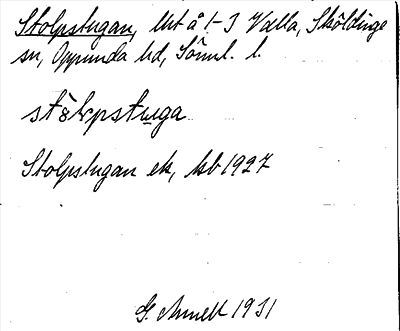 Stolpstugan, lht å 1-3 Valla, Sköldinge
sn, Oppunda hd, Söml. l.
stålpstuga
Stolpstugan ek, kb 1927
G. Arnell 1931